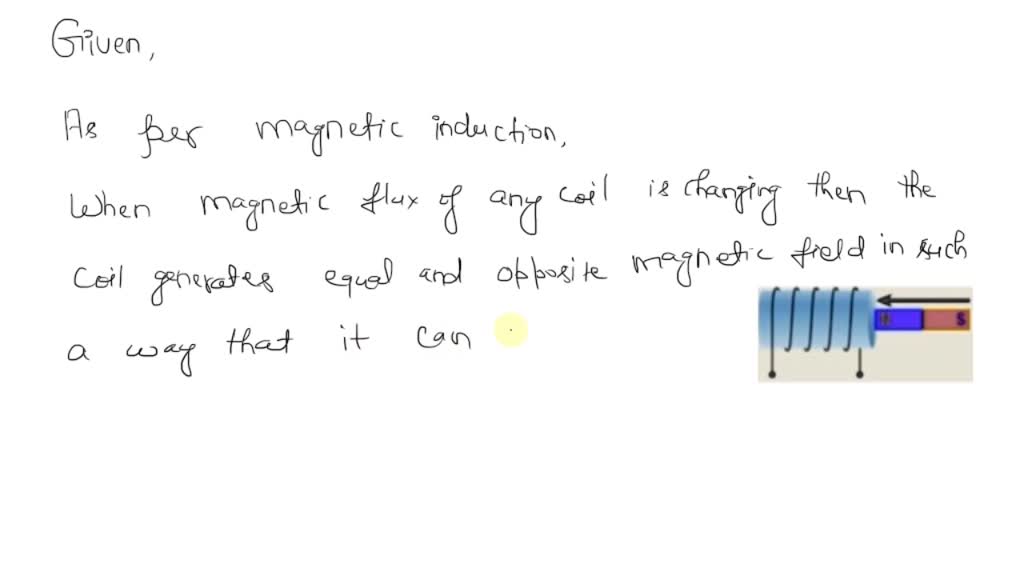 Given,
As per magnetic induction,
When magnetic flux of any coil is changing then the
coil generates equal and opposite magnetic field in such
a way that it can
S